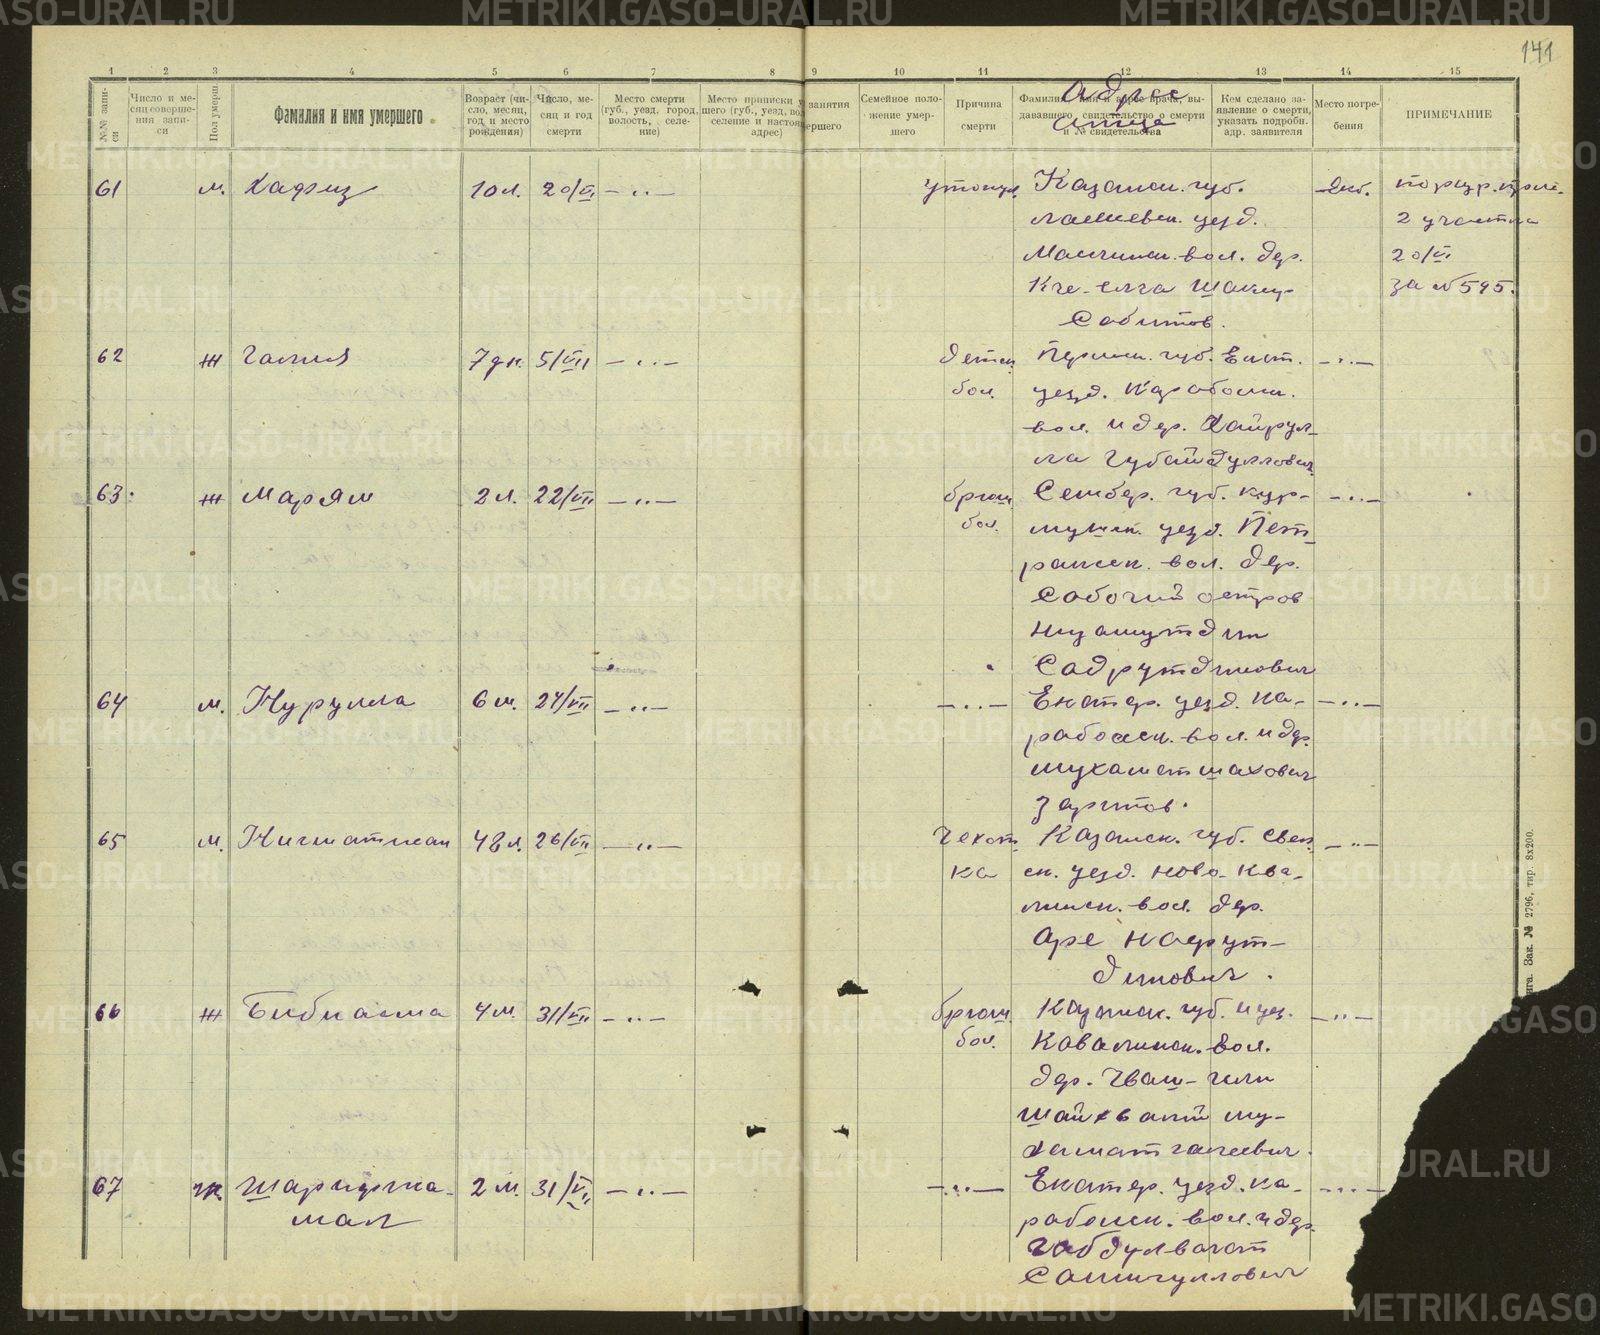 141
1 2 3 4 5 6 7 8 9 10 11 12 13 14 15
№№ записи
Число и месяц совершения записи
Пол умерш.
Фамилия и имя умершего
Возраст (число, месяц, год и место рождения)
Число, месяц и год смерти
Место смерти (губ., уезд, город, волость, селение)
Место приписки у
шего (губ., уезд, вол
селение и настоя
адрес)
занятия
мершего
Семейное положение умершего
Причина смерти
Фамилия, имя и адрес врача, выдававшего свидетельство о смерти и № свидетельства
Адрес
отца
Кем сделано заявление о смерти, указать подробн. адр. заявителя
Место погребения
ПРИМЕЧАНИЕ
61 м. Хафиз 10 л. 20/VI — „ — утонул. Казанск. губ.
Лаишевск. уезд.
вол. дер.
Сабитов.
2 участка
20/VI
за № 595.
62 ж Галия 7 дн. 5/VII — „ — детск. бол. Пермск. губ. Екат. — „ —
уезд. Карабольск.
вол. и дер. Хайрул-
ла Губайдуллович
63 ж Марям 2 л. 22/VII — „ — брюш. бол. Симбер. губ. Кур- — „ —
мышск. уезд. Пет-
ракск. вол. дер.
остров
Низамутдин
Садрутдинович
64 м. Нурулла 6 м. 24/VII — „ — — „ — Екатер. уезд. Ка- — „ —
рабольск. вол. и дер.
Мухаматшахович
Зарипов.
65 м. Нигматжан 48 л. 26/VII — „ — Чехотка Казанск. губ. Свея- — „ —
ск. уезд. Ново-Ква-
линск. вол. дер.
динович.
66 ж Бибиасма 4 м. 31/VII — „ — брюш. бол. Казанск. губ. и уез. — „ —
Кавалинск. вол.
дер.
му-
хаматгалеевич.
67 ж. Шарифжа- 2 м. 31/VII — „ — — „ — Екатер. уезд. Ка- — „ —
мал
рабольск. вол. и дер.
Габдулвагат
Самигуллович
Зак. № 2796, тир. 8x200.
METRIKI.GASO-URAL.RU